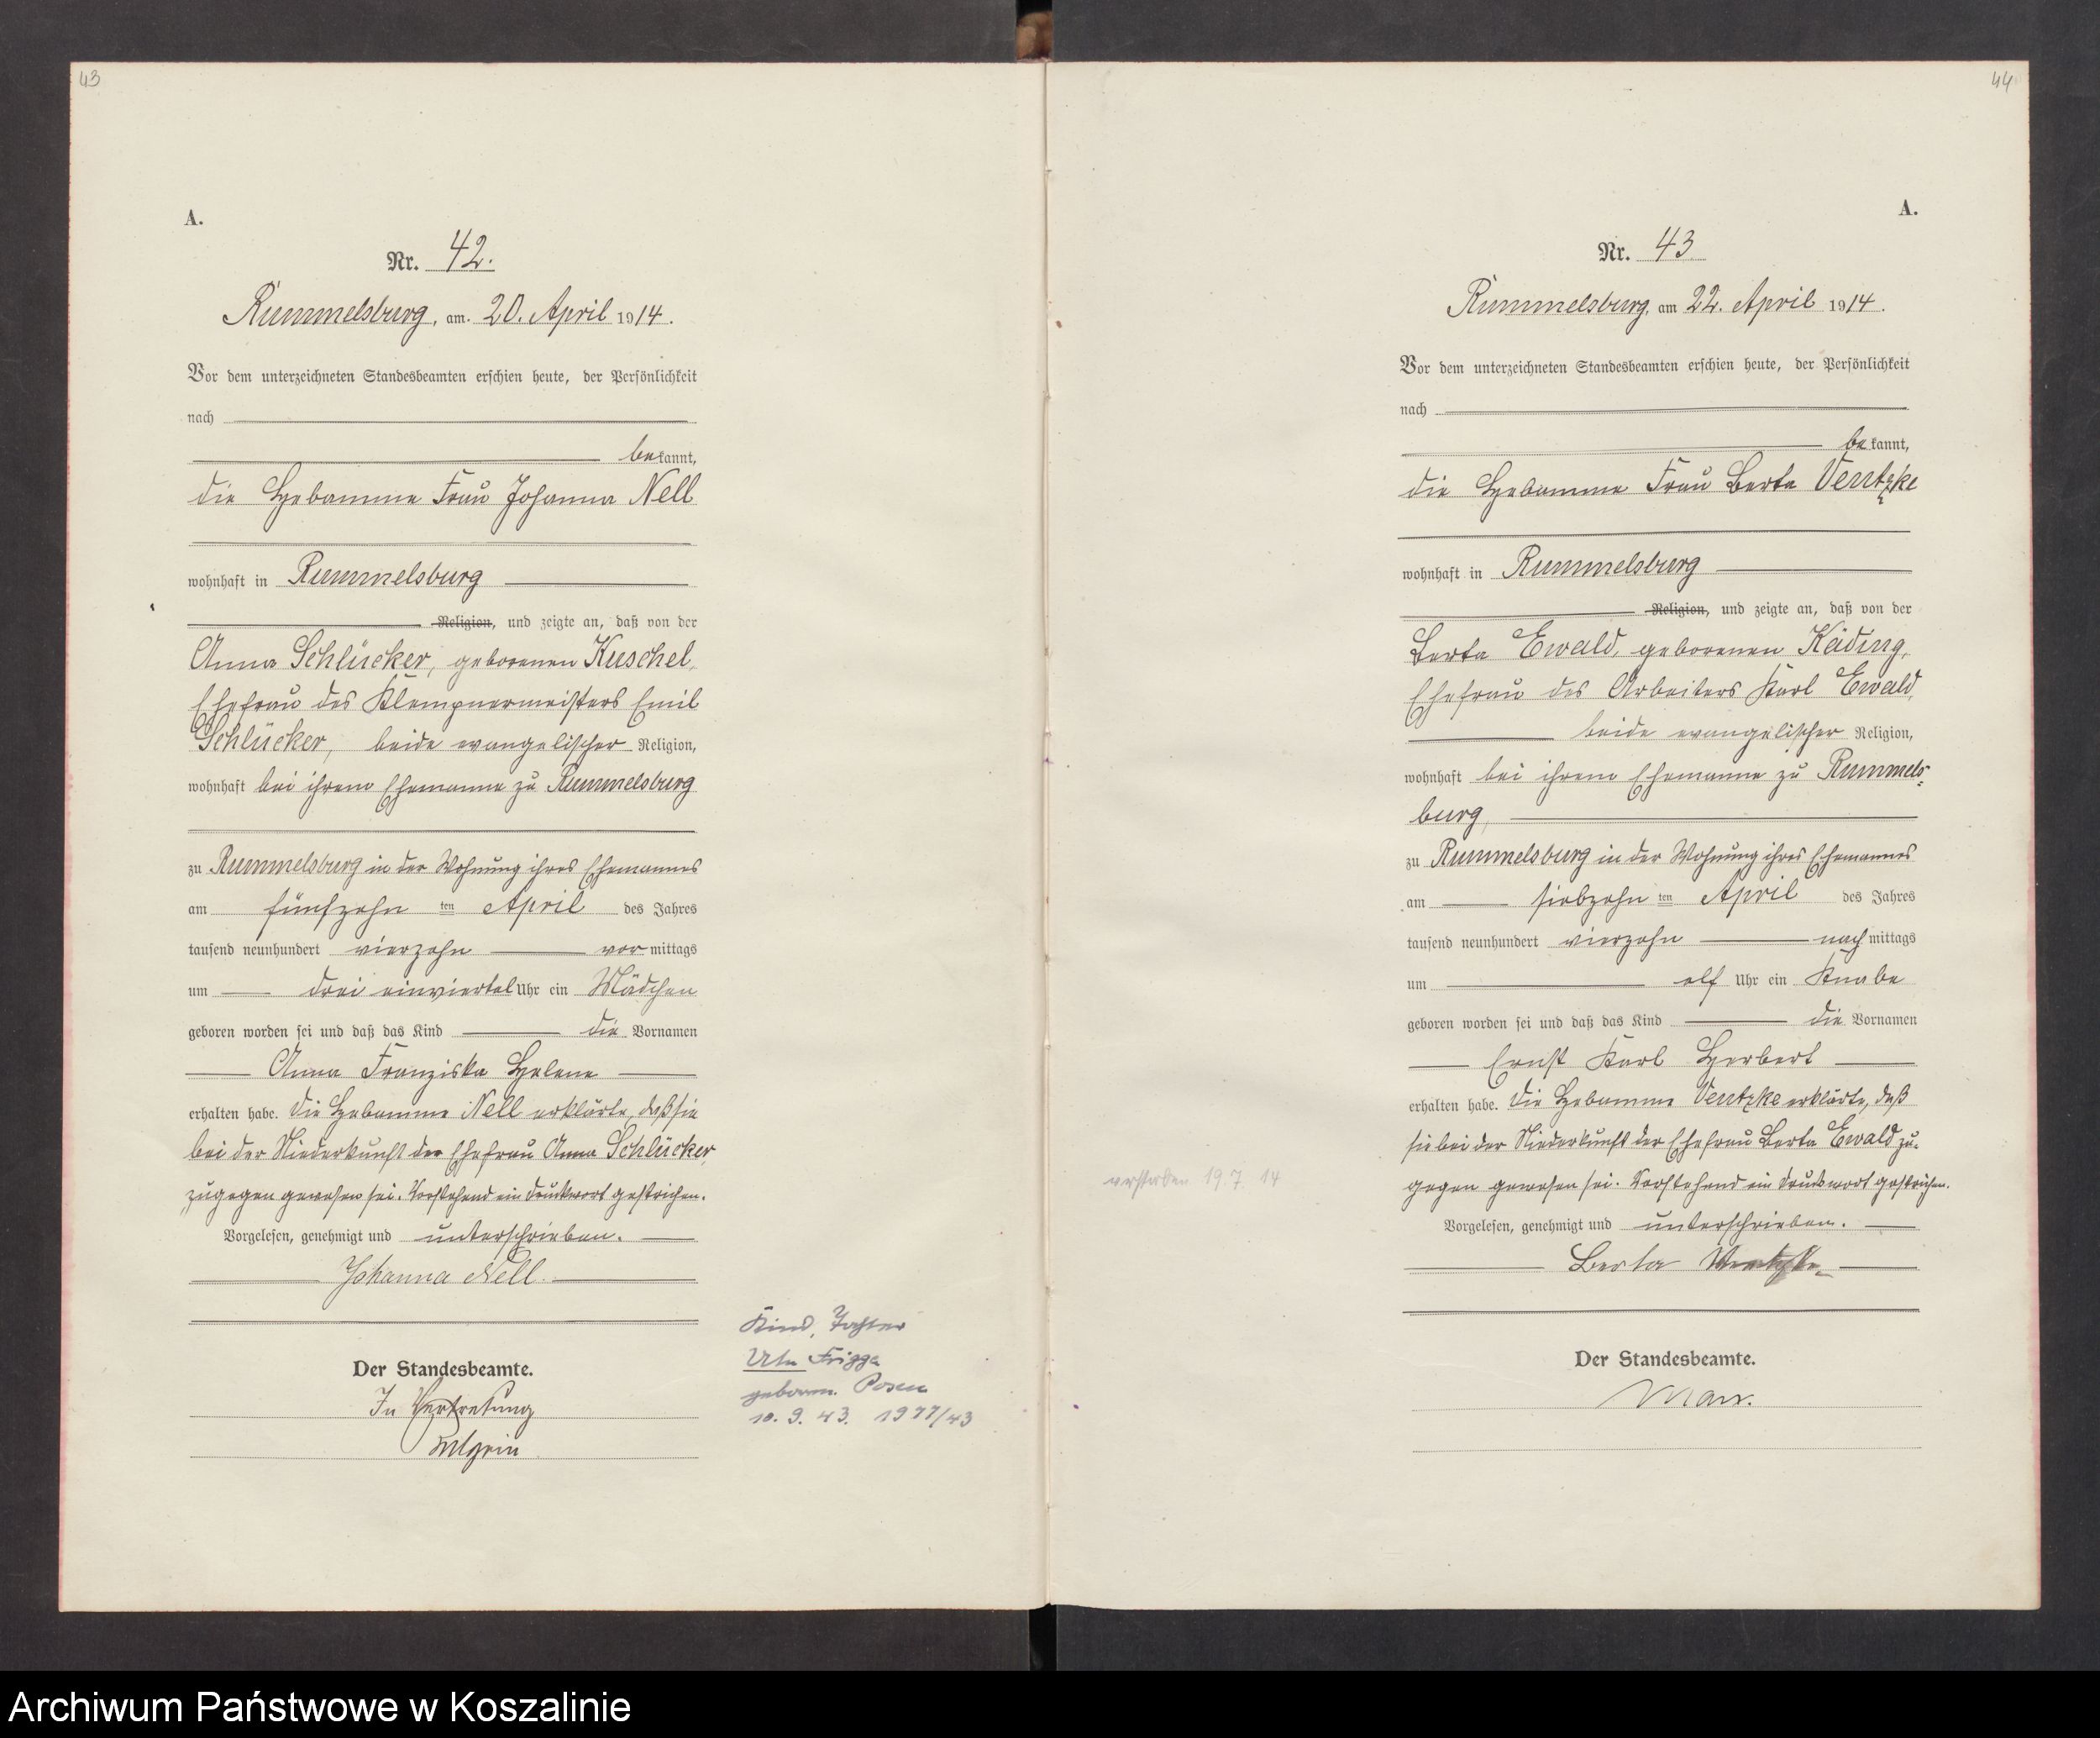 43
A.
Nr. 42.
Rummelsburg, am 20. April 1914.
Vor dem unterzeichneten Standesbeamten erschien heute, der Persönlichkeit
nach
bekannt,
die Hebamme Frau Johanna Nell
wohnhaft in Rummelsburg
Religion, und zeigte an, daß von der
Anna Schlücker, geborenen Kuschel,
Ehefrau des Klempnermeisters Emil
Schlücker, beide evangelischer Religion,
wohnhaft bei ihrem Ehemanne zu Rummelsburg
zu Rummelsburg in der Wohnung ihres Ehemannes
am fünfzehnten April des Jahres
tausend neunhundert vierzehn vormittags
um drei einviertel Uhr ein Mädchen
geboren worden sei und daß das Kind die Vornamen
Anna Franziska Helene
erhalten habe. Die Hebamme Nell erklärte, daß sie
bei der Niederkunft der Ehefrau Anna Schlücker,
zugegen gewesen sei. Vorstehend ein Druckwort gestrichen.
Vorgelesen, genehmigt und unterschrieben.
Johanna Nell.
Der Standesbeamte.
In Vertretung
Kind, Tochter
Uta Frigga
geboren. Posen
10. 9. 43. 1977/43
44
A.
Nr. 43
Rummelsburg, am 22. April 1914.
Vor dem unterzeichneten Standesbeamten erschien heute, der Persönlichkeit
nach
bekannt,
die Hebamme Frau Berta Ventzke
wohnhaft in Rummelsburg
Religion, und zeigte an, daß von der
Berta Ewald, geborenen Käding,
Ehefrau des Arbeiters Karl Ewald,
beide evangelischer Religion,
wohnhaft bei ihrem Ehemanne zu Rummels-
burg,
zu Rummelsburg in der Wohnung ihres Ehemannes
am siebzehnten April des Jahres
tausend neunhundert vierzehn nachmittags
um elf Uhr ein Knabe
geboren worden sei und daß das Kind die Vornamen
Ernst Karl Herbert
erhalten habe. Die Hebamme Ventzke erklärte, daß
sie bei der Niederkunft der Ehefrau Berta Ewald zu-
gegen gewesen sei. Vorstehend ein Druckwort gestrichen.
Vorgelesen, genehmigt und unterschrieben.
Berta Ventzke
Der Standesbeamte.
verstorben 19.7.14
Archiwum Państwowe w Koszalinie